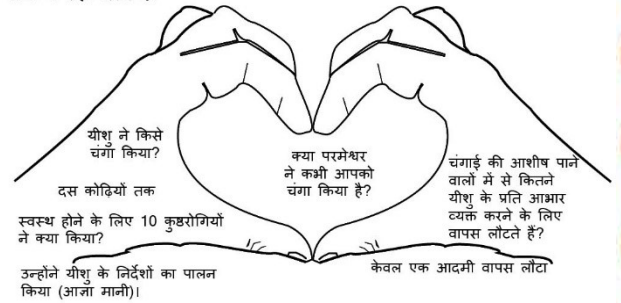 यीशु ने किसे
चंगा किया?
दस कोढ़ियों तक
स्वस्थ होने के लिए 10 कुष्ठरोगियों
ने क्या किया?
उन्होंने यीशु के निर्देशों का पालन
किया (आज्ञा मानी)।
क्या परमेश्वर
ने कभी आपको
चंगा किया है?
चंगाई की आशीष पाने
वालों में से कितने
यीशु के प्रति आभार
व्यक्त करने के लिए
वापस लौटते हैं?
केवल एक आदमी वापस लौटा